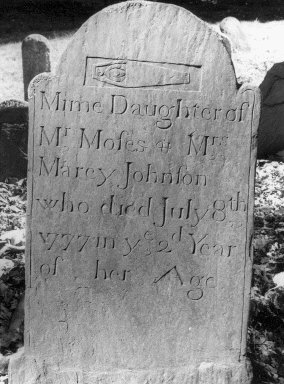 Mime Daughter of
Mr Moſes & Mrs
Marcy Johnſon
who died July 8th
1777 in ye 2d Year
of her Age